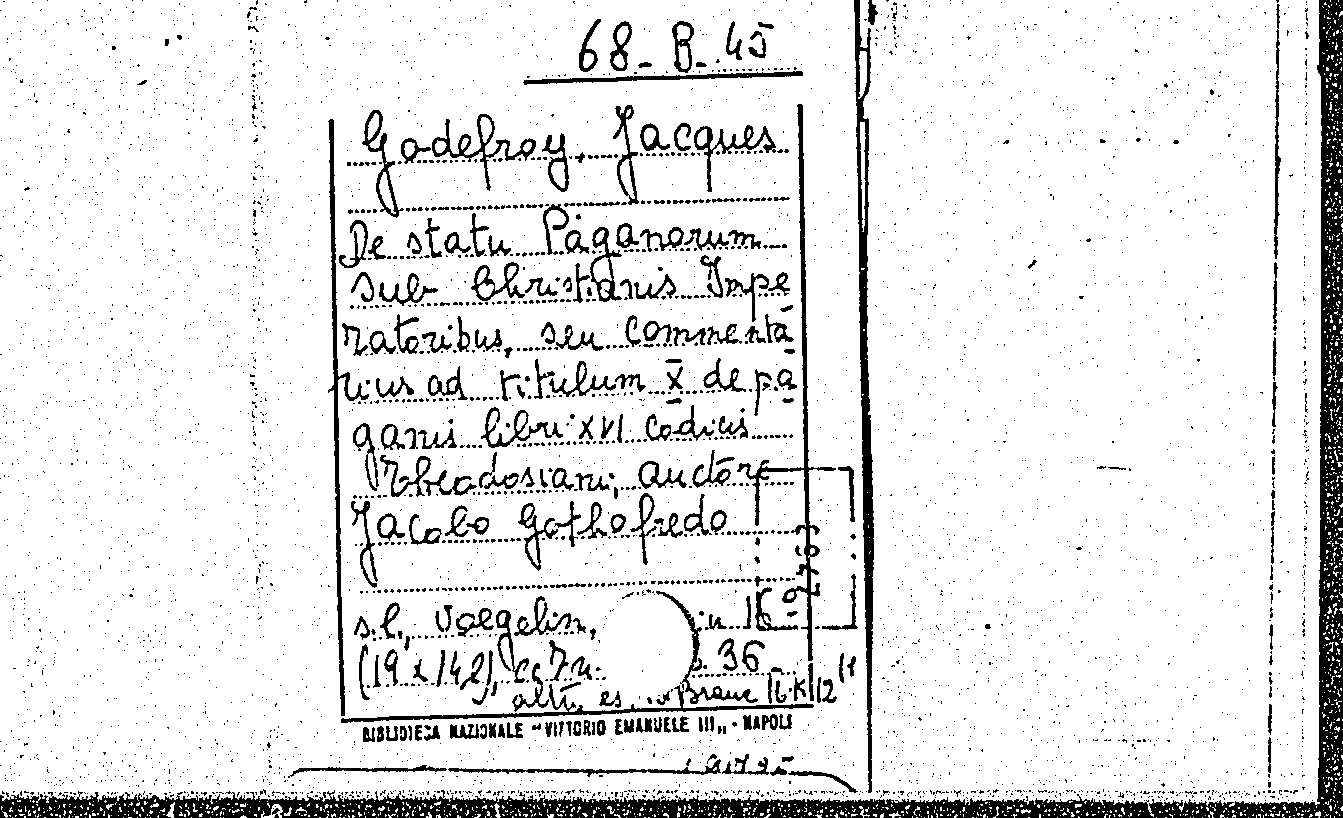 68-B-45
Godefroy, Jacques
De statu Paganorum
sub Christianis Impe
ratoribus, seu commenta
rius ad titulum X de pa
ganis libri XVI codicis
Theodosiani, auctore
Jacobo Gothofredo
s.l., Voegelin, in 16
(19 x 14,2), cc 7n. s. 36
altri es. Branc
BIBLIOTECA NAZIONALE "VITTORIO EMANUELE III" - NAPOLI